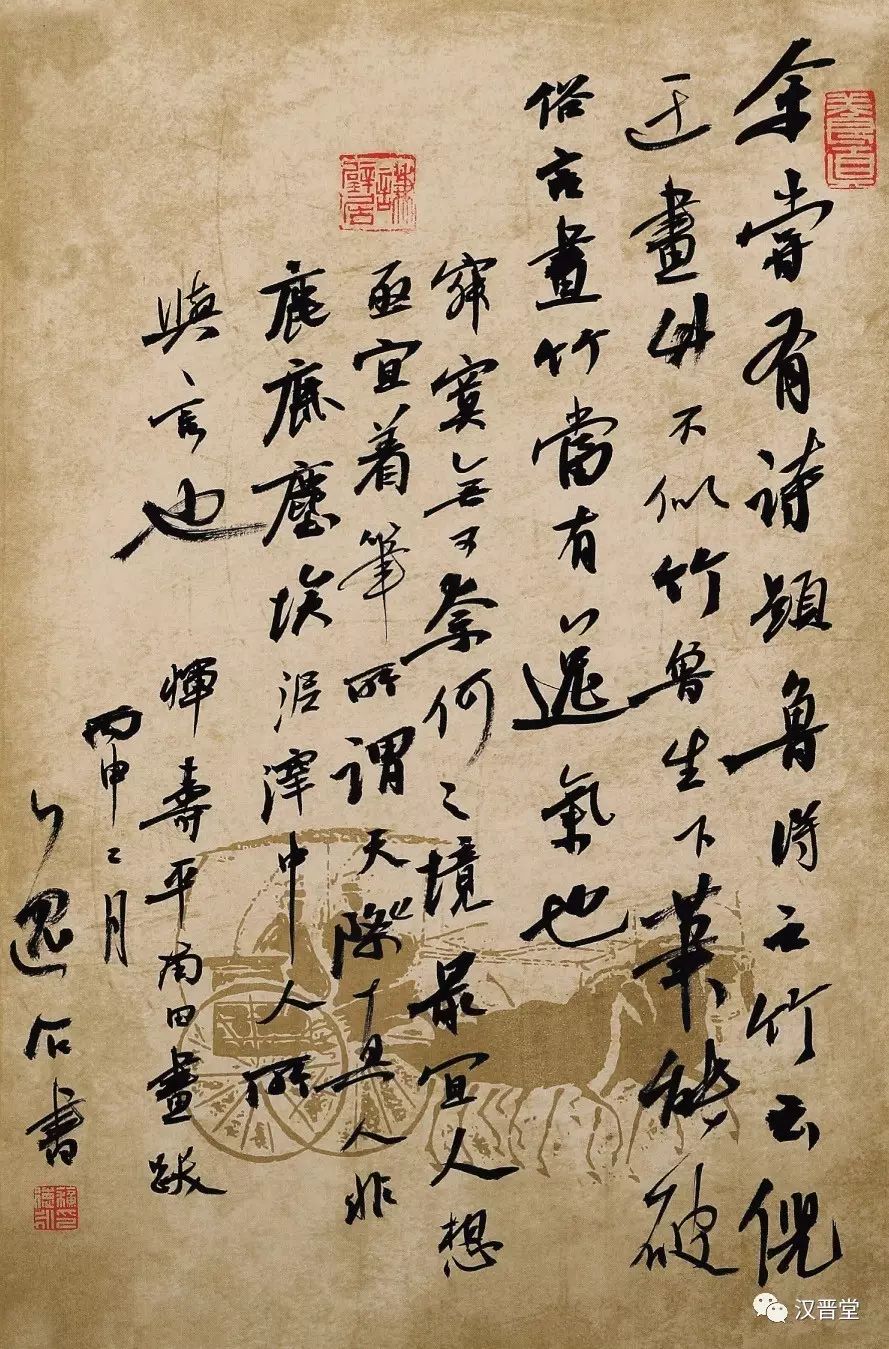 余嘗有詩題魯得之竹云倪
迂畫竹不似竹魯生下筆能破
俗言畫竹當有逸氣也
寂寞無可奈何之境最宜入想
亟宜着筆所謂天際真人非
鹿鹿塵埃泥滓中人所
與言也
惲壽平南田畫跋
丙申二月
逸石書
汉晋堂